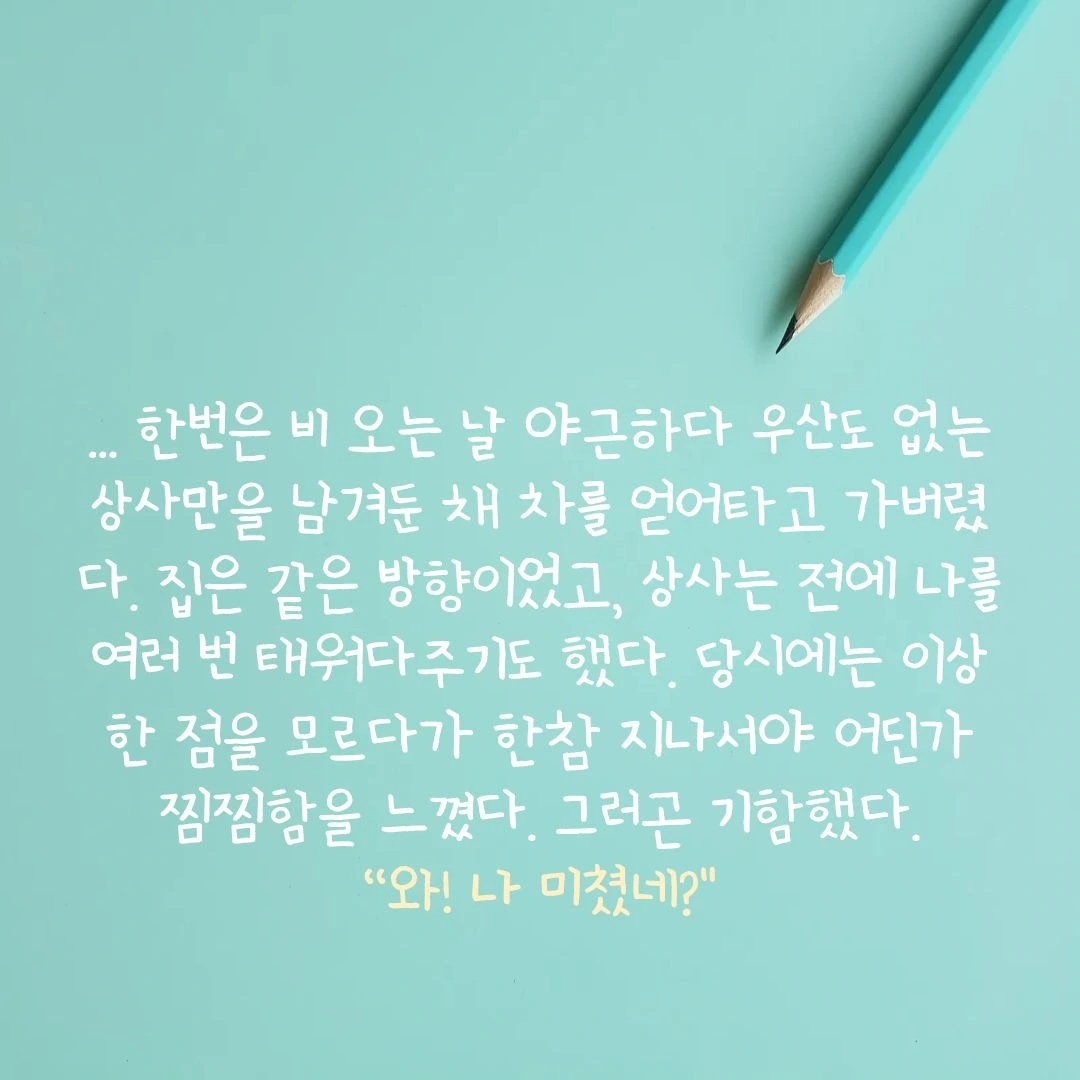 ... 한번은 비 오는 날 야근하다 우산도 없는
상사만을 남겨둔 채 차를 얻어타고 가버렸
다. 집은 같은 방향이었고, 상사는 전에 나를
여러 번 태워다주기도 했다. 당시에는 이상
한 점을 모르다가 한참 지나서야 어딘가
찜찜함을 느꼈다. 그러곤 기함했다.
“와! 나 미쳤네?"